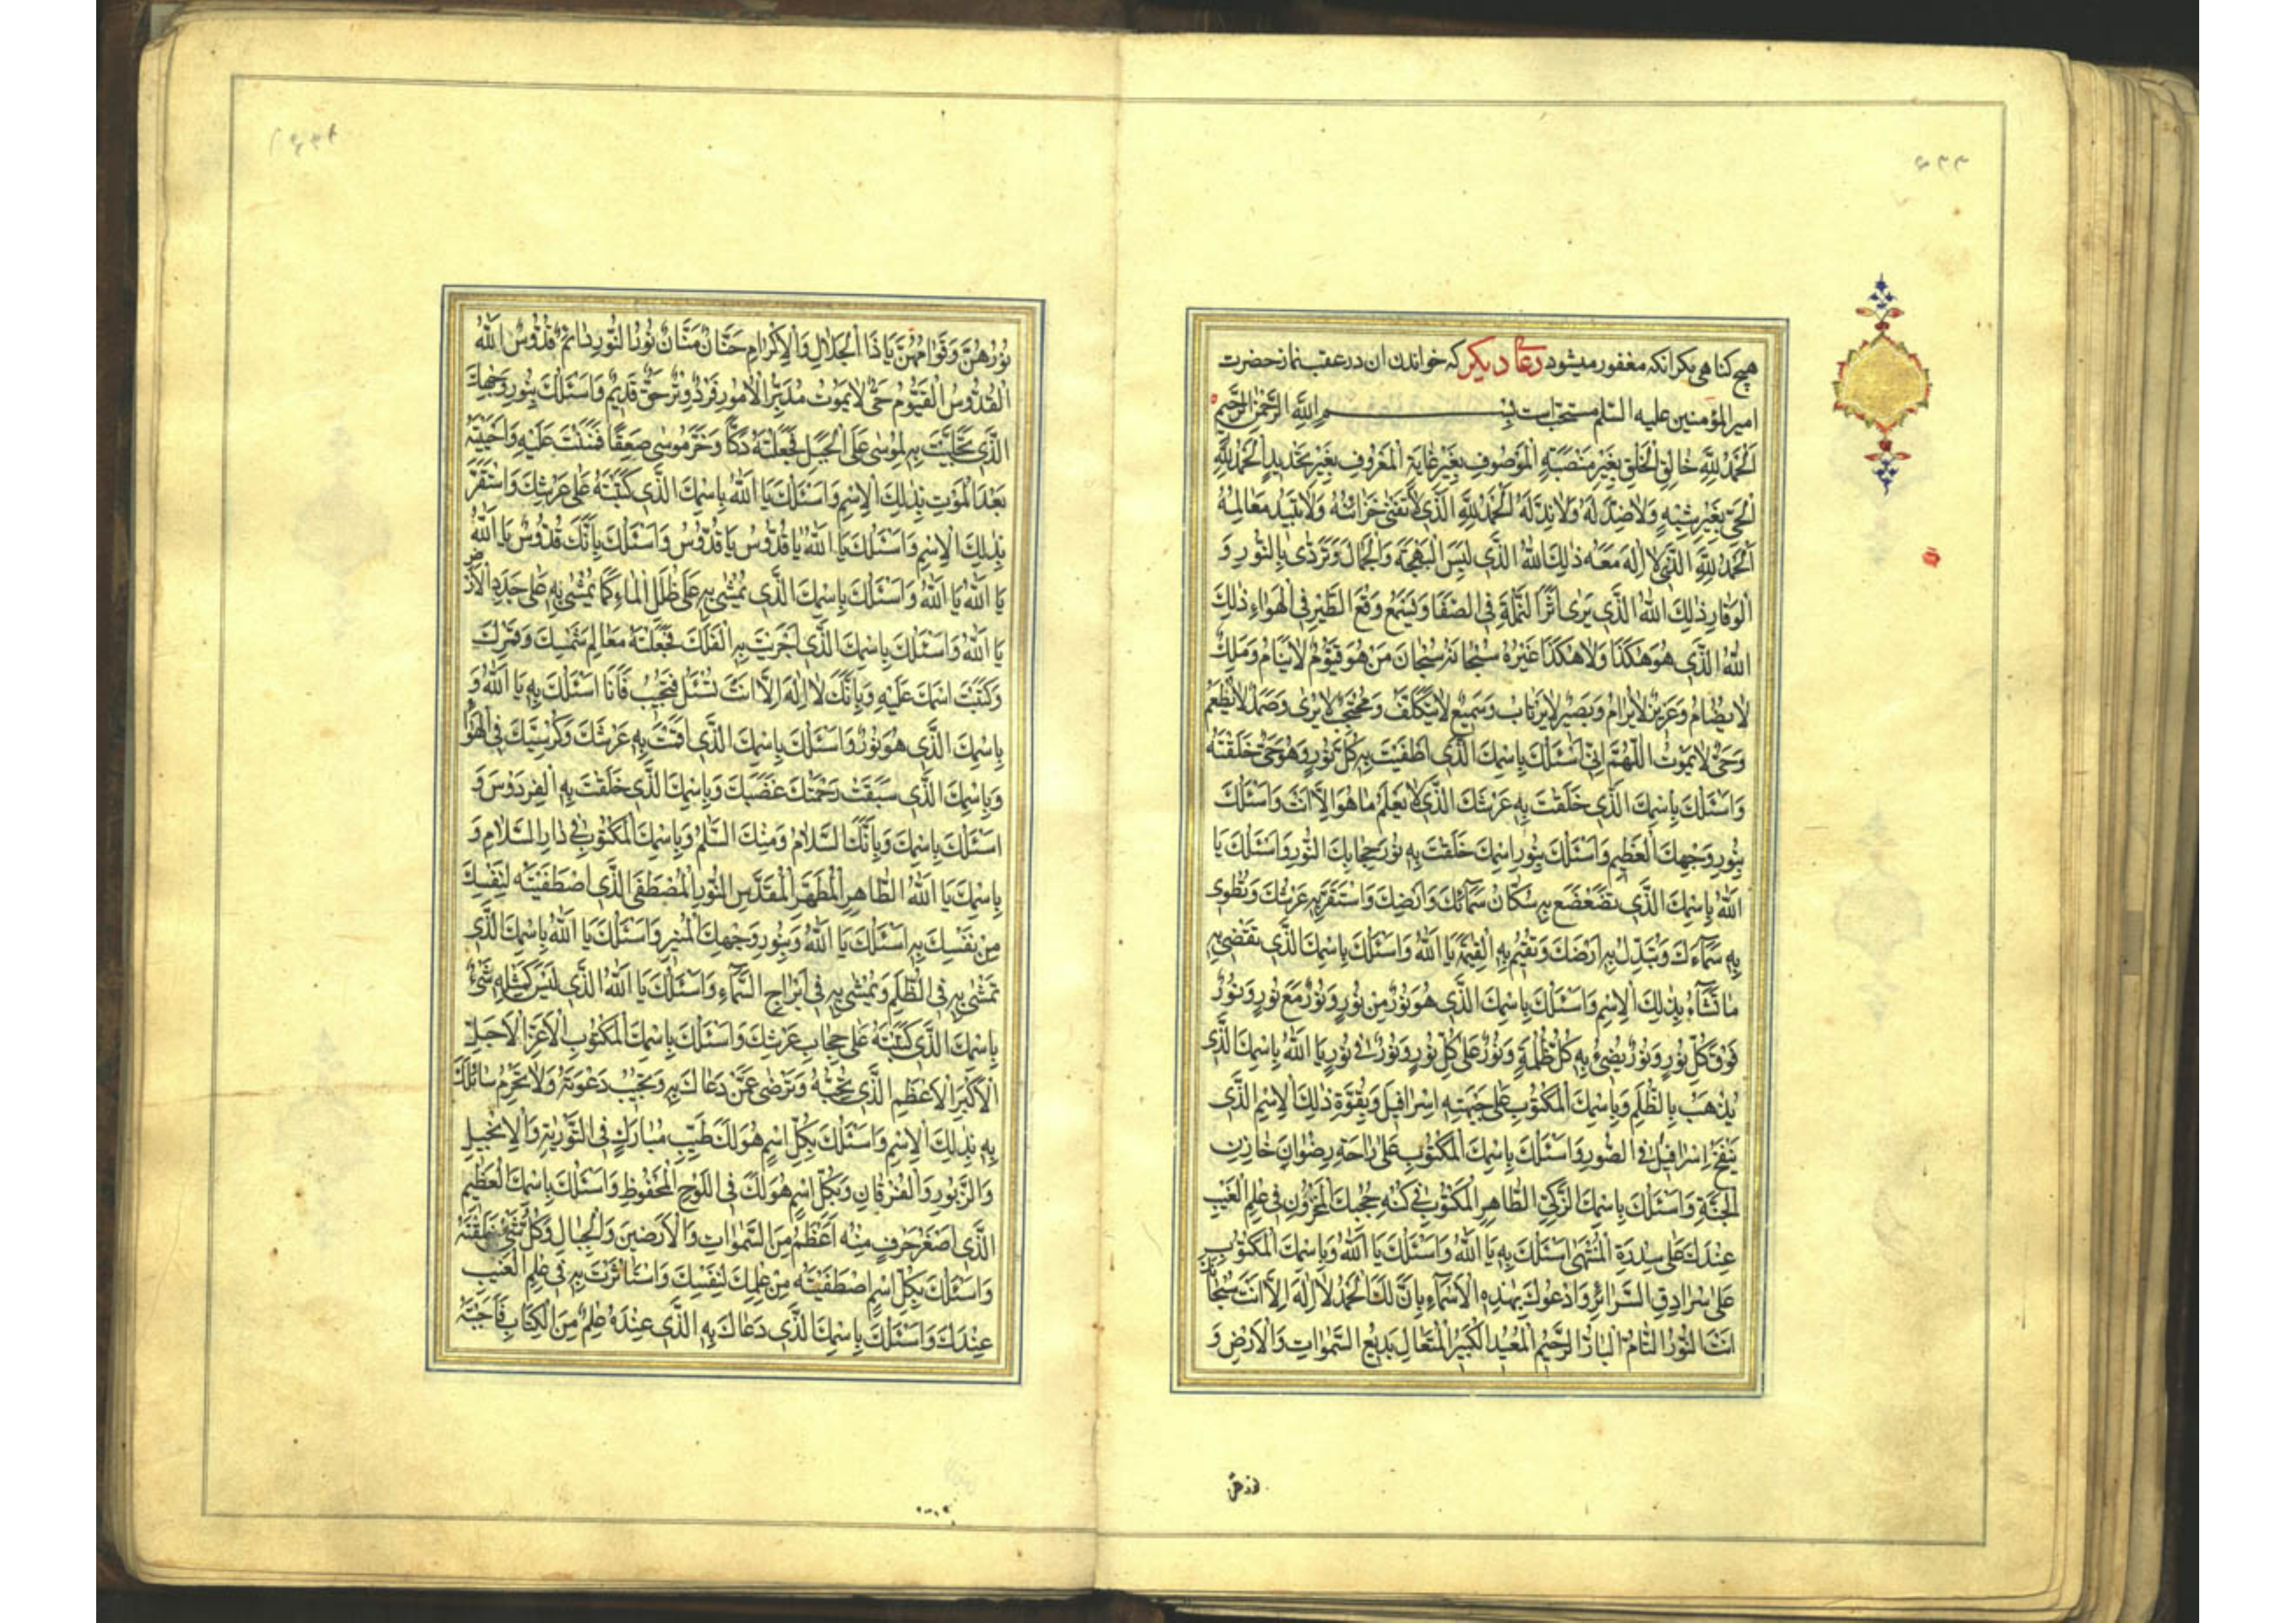 ۶۳۳
هیچ کناهی مکر انکه مغفور میشود دعای دیکر که خواندن ان در عقب نماز حضرت
امیر المؤمنین علیه السّلم مستحبّ است بِسْمِ اللّهِ الرَّحْمٰنِ الرَّحیمِ
اَلْحَمْدُ لِلّهِ خالِقِ الْخَلْقِ بِغَیْرِ مَنْصَبَةٍ الْمَوْصُوفِ بِغَیْرِ غایَةٍ الْمَعْرُوفِ بِغَیْرِ تَحْدیدٍ اَلْحَمْدُ لِلّهِ
الْحَیِّ بِغَیْرِ شِبْهٍ وَلا ضِدَّ لَهُ وَلا نِدَّ لَهُ اَلْحَمْدُ لِلّهِ الَّذی لا تَفْنیٰ خَزائِنُهُ وَلا تَبیدُ مَعالِمُهُ
اَلْحَمْدُ لِلّهِ الَّذی لا اِلٰهَ مَعَهُ ذٰلِكَ اللّهُ الَّذی لَبِسَ الْبَهْجَةَ وَالْجَمالَ وَتَرَدّیٰ بِالنُّورِ وَ
الْوَقارِ ذٰلِكَ اللّهُ الَّذی یَریٰ اَثَرَ النَّمْلَةِ فِی الصَّفا وَیَسْمَعُ وَقْعَ الطَّیْرِ فِی الْهَواءِ ذٰلِكَ
اللّهُ الَّذی هُوَ هٰکَذا وَلا هٰکَذا غَیْرُهُ سُبْحانَهُ سُبْحانَ مَنْ هُوَ قَیُّومٌ لا یَنامُ وَمَلِكٌ
لا یُضامُ وَعَزیزٌ لا یُرامُ وَبَصیرٌ لا یَرْتابُ وَسَمیعٌ لا یَتَکَلَّفُ وَمُحْتَجِبٌ لا یُریٰ وَصَمَدٌ لا یَطْعَمُ
وَحَیٌّ لا یَمُوتُ اللّهُمَّ اِنّی اَسْئَلُكَ بِاسْمِكَ الَّذی اَطْفَیْتَ بِهِ کُلَّ نُورٍ وَهُوَ حَیٌّ خَلَقْتَهُ
وَاَسْئَلُكَ بِاسْمِكَ الَّذی خَلَقْتَ بِهِ عَرْشَكَ الَّذی لا یَعْلَمُ ما هُوَ اِلّا اَنْتَ وَاَسْئَلُكَ
بِنُورِ وَجْهِكَ الْعَظیمِ وَاَسْئَلُكَ بِنُورِ اسْمِكَ خَلَقْتَ بِهِ نُورَ حِجابِكَ النُّورَ وَاَسْئَلُكَ یا
اللّهُ بِاسْمِكَ الَّذی تَضَعْضَعَ بِهِ سُکّانُ سَمآئِكَ وَاَرْضِكَ وَاسْتَقَرَّ بِهِ عَرْشُكَ وَتَطْوی
بِهِ سَمآءَكَ وَتُبَدِّلُ بِهِ اَرْضَكَ وَتُقیمُ بِهِ الْقِیمَةَ یا اَللّهُ وَاَسْئَلُكَ بِاسْمِكَ الَّذی تَقْضی بِهِ
ما تَشآءُ بِذٰلِكَ الْاِسْمِ وَاَسْئَلُكَ بِاسْمِكَ الَّذی هُوَ نُورٌ مِنْ نُورٍ وَنُورٌ مَعَ نُورٍ وَنُورٌ
فَوْقَ کُلِّ نُورٍ وَنُورٌ یُضیءُ بِهِ کُلُّ ظُلْمَةٍ وَنُورٌ عَلیٰ کُلِّ نُورٍ وَنُورٌ فی نُورٍ یا اَللّهُ بِاسْمِكَ الَّذی
یُذْهَبُ بِالظُّلَمِ وَبِاسْمِكَ الْمَکْتُوبِ عَلیٰ جَبْهَتِهِ اِسْرافیلَ وَبِقُوَّةِ ذٰلِكَ الْاِسْمِ الَّذی
یَنْفَخُ اِسْرافیلُ فِی الصُّورِ وَاَسْئَلُكَ بِاسْمِكَ الْمَکْتُوبِ عَلیٰ راحَةِ رِضْوانَ خازِنِ
الْجَنَّةِ وَاَسْئَلُكَ بِاسْمِكَ الزَّکِیِّ الطّاهِرِ الْمَکْتُوبِ فی کُنْهِ حُجُبِكَ الْمَخْزُونِ فی عِلْمِ الْغَیْبِ
عِنْدَكَ عَلیٰ سِدْرَةِ الْمُنْتَهیٰ اَسْئَلُكَ بِهِ یا اَللّهُ وَاَسْئَلُكَ یا اَللّهُ وَبِاسْمِكَ الْمَکْتُوبِ
عَلیٰ سُرادِقِ السَّرائِرِ وَاَدْعُوكَ بِهٰذِهِ الْاَسْمآءِ بِاَنَّ لَكَ الْحَمْدُ لا اِلٰهَ اِلّا اَنْتَ سُبْحانَكَ
اَنْتَ النُّورُ التّامُّ الْبارُّ الرَّحیمُ الْمُعیدُ الْکَبیرُ الْمُتَعالِ بَدیعُ السَّمٰواتِ وَالْاَرْضِ وَ
نورهنّ
نُورُهُنَّ وَقِوامُهُنَّ یا ذَا الْجَلالِ وَالْاِکْرامِ حَنّانٌ مَنّانٌ نُورُ النُّورِ دائِمٌ قُدُّوسٌ اللّهُ
الْقُدُّوسُ الْقَیُّومُ حَیٌّ لا یَمُوتُ مُدَبِّرُ الْاُمُورِ فَرْدٌ وِتْرٌ حَقٌّ قَدیمٌ وَاَسْئَلُكَ بِنُورِ وَجْهِكَ
الَّذی تَجَلَّیْتَ بِهِ لِمُوسیٰ عَلَی الْجَبَلِ فَجَعَلْتَهُ دَکّاً وَخَرَّ مُوسیٰ صَعِقاً فَمَنَنْتَ عَلَیْهِ وَاَحْیَیْتَهُ
بَعْدَ الْمَوْتِ بِذٰلِكَ الْاِسْمِ وَاَسْئَلُكَ یا اَللّهُ بِاسْمِكَ الَّذی کَتَبْتَهُ عَلیٰ عَرْشِكَ وَاسْتَقَرَّ
بِذٰلِكَ الْاِسْمِ وَاَسْئَلُكَ یا اَللّهُ یا قُدُّوسُ یا قُدُّوسُ وَاَسْئَلُكَ بِاَنَّكَ قُدُّوسٌ یا اَللّهُ
یا اَللّهُ یا اَللّهُ وَاَسْئَلُكَ بِاسْمِكَ الَّذی یُمْشیٰ بِهِ عَلیٰ ظُلَلِ الْماءِ کَما یُمْشیٰ بِهِ عَلیٰ جَدَدِ الْاَرْضِ
یا اَللّهُ وَاَسْئَلُكَ بِاسْمِكَ الَّذی اَجْرَیْتَ بِهِ الْفَلَكَ فَجَعَلْتَهُ مَعالِمَ شَمْسِكَ وَقَمَرِكَ
وَکَتَبْتَ اسْمَكَ عَلَیْهِ وَبِاَنَّكَ لا اِلٰهَ اِلّا اَنْتَ تُسْئَلُ فَتُجیبُ فَاَنَا اَسْئَلُكَ بِهِ یا اَللّهُ وَ
بِاسْمِكَ الَّذی هُوَ نُورٌ وَاَسْئَلُكَ بِاسْمِكَ الَّذی اَقَمْتَ بِهِ عَرْشَكَ وَکُرْسِیَّكَ فِی الْهَواءِ
وَبِاسْمِكَ الَّذی سَبَقَتْ رَحْمَتُكَ غَضَبَكَ وَبِاسْمِكَ الَّذی خَلَقْتَ بِهِ الْفِرْدَوْسَ وَ
اَسْئَلُكَ بِاسْمِكَ وَبِاَنَّكَ السَّلامُ وَمِنْكَ السَّلمُ وَبِاسْمِكَ الْمَکْتُوبِ فی دارِ السَّلامِ وَ
بِاسْمِكَ یا اَللّهُ الطّاهِرِ الْمُطَهَّرِ الْمُقَدَّسِ النُّورِ الْمُصْطَفَی الَّذی اصْطَفَیْتَهُ لِنَفْسِكَ
مِنْ نَفْسِكَ بِهِ اَسْئَلُكَ یا اَللّهُ وَبِنُورِ وَجْهِكَ الْمُنیرِ وَاَسْئَلُكَ یا اَللّهُ بِاسْمِكَ الَّذی
تَمْشی بِهِ فِی الظُّلَمِ وَیُمْشیٰ بِهِ فی اَبْراجِ السَّمآءِ وَاَسْئَلُكَ یا اَللّهُ الَّذی لَیْسَ کَمِثْلِهِ شَیْءٌ
بِاسْمِكَ الَّذی کَتَبْتَهُ عَلیٰ حِجابِ عَرْشِكَ وَاَسْئَلُكَ بِاسْمِكَ الْمَکْتُوبِ الْاَعَزِّ الْاَجَلِّ
الْاَکْبَرِ الْاَعْظَمِ الَّذی تُحِبُّهُ وَتَرْضیٰ عَمَّنْ دَعاكَ بِهِ وَتُجیبُ دَعْوَتَهُ وَلا تَحْرِمُ سائِلَكَ
بِهِ بِذٰلِكَ الْاِسْمِ وَاَسْئَلُكَ بِکُلِّ اسْمٍ هُوَ لَكَ طَیِّبٍ مُبارَكٍ فِی التَّوْریٰةِ وَالْاِنْجیلِ
وَالزَّبُورِ وَالْفُرْقانِ وَبِکُلِّ اسْمٍ هُوَ لَكَ فِی اللَّوْحِ الْمَحْفُوظِ وَاَسْئَلُكَ بِاسْمِكَ الْعَظیمِ
الَّذی اَصْغَرُ حَرْفٍ مِنْهُ اَعْظَمُ مِنَ السَّمٰواتِ وَالْاَرَضینَ وَالْجِبالِ وَکُلِّ شَیْءٍ خَلَقْتَهُ
وَاَسْئَلُكَ بِکُلِّ اسْمٍ اصْطَفَیْتَهُ مِنْ عِلْمِكَ لِنَفْسِكَ وَاسْتَأْثَرْتَ بِهِ فی عِلْمِ الْغَیْبِ
عِنْدَكَ وَاَسْئَلُكَ بِاسْمِكَ الَّذی دَعاكَ بِهِ الَّذی عِنْدَهُ عِلْمٌ مِنَ الْکِتابِ فَاَجَبْتَهُ